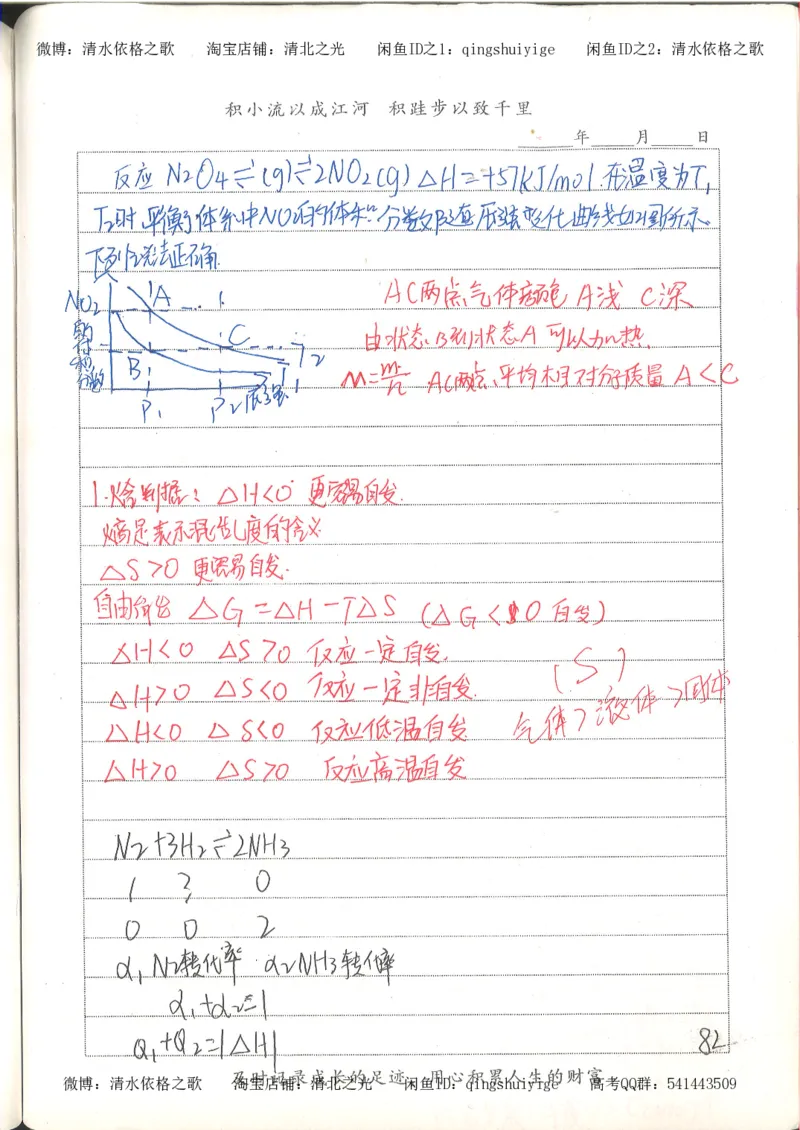 微博：清水依格之歌 淘宝店铺：清北之光 闲鱼ID之1：qingshuiyige 闲鱼ID之2：清水依格之歌
积小流以成江河 积跬步以致千里
年 月 日
反应 N2O4⇌(g)⇌2NO2(g) △H=+57kJ/mol.在温度为T1
T2时 平衡体系中NO2的体积分数随压强变化曲线如图所示.
下列说法正确
NO2
的
体
积
分数
A
B
C
T2
T1
P1 P2 压强
AC两点气体颜色 A浅 C深
由状态B到状态A 可以加热.
M=m/n AC两点,平均相对分子质量 A<C
1.焓判据: △H<0 更容易自发.
熵是表示混乱度的含义
△S>0 更容易自发.
自由能 △G=△H-T△S (△G<0 自发)
△H<0 △S>0 反应一定自发.
△H>0 △S<0 反应一定非自发.
△H<0 △S<0 反应低温自发
△H>0 △S>0 反应高温自发
(S)
气体>液体>固体
N2+3H2⇌2NH3
1 3 0
0 0 2
α1 N2转化率 α2NH3转化率
α1+α2=1
Q1+Q2=|△H|
82
及时记录成长的足迹 用心积累人生的财富
微博：清水依格之歌 淘宝店铺：清北之光 闲鱼ID之1：qingshuiyige 高考QQ群：541443509